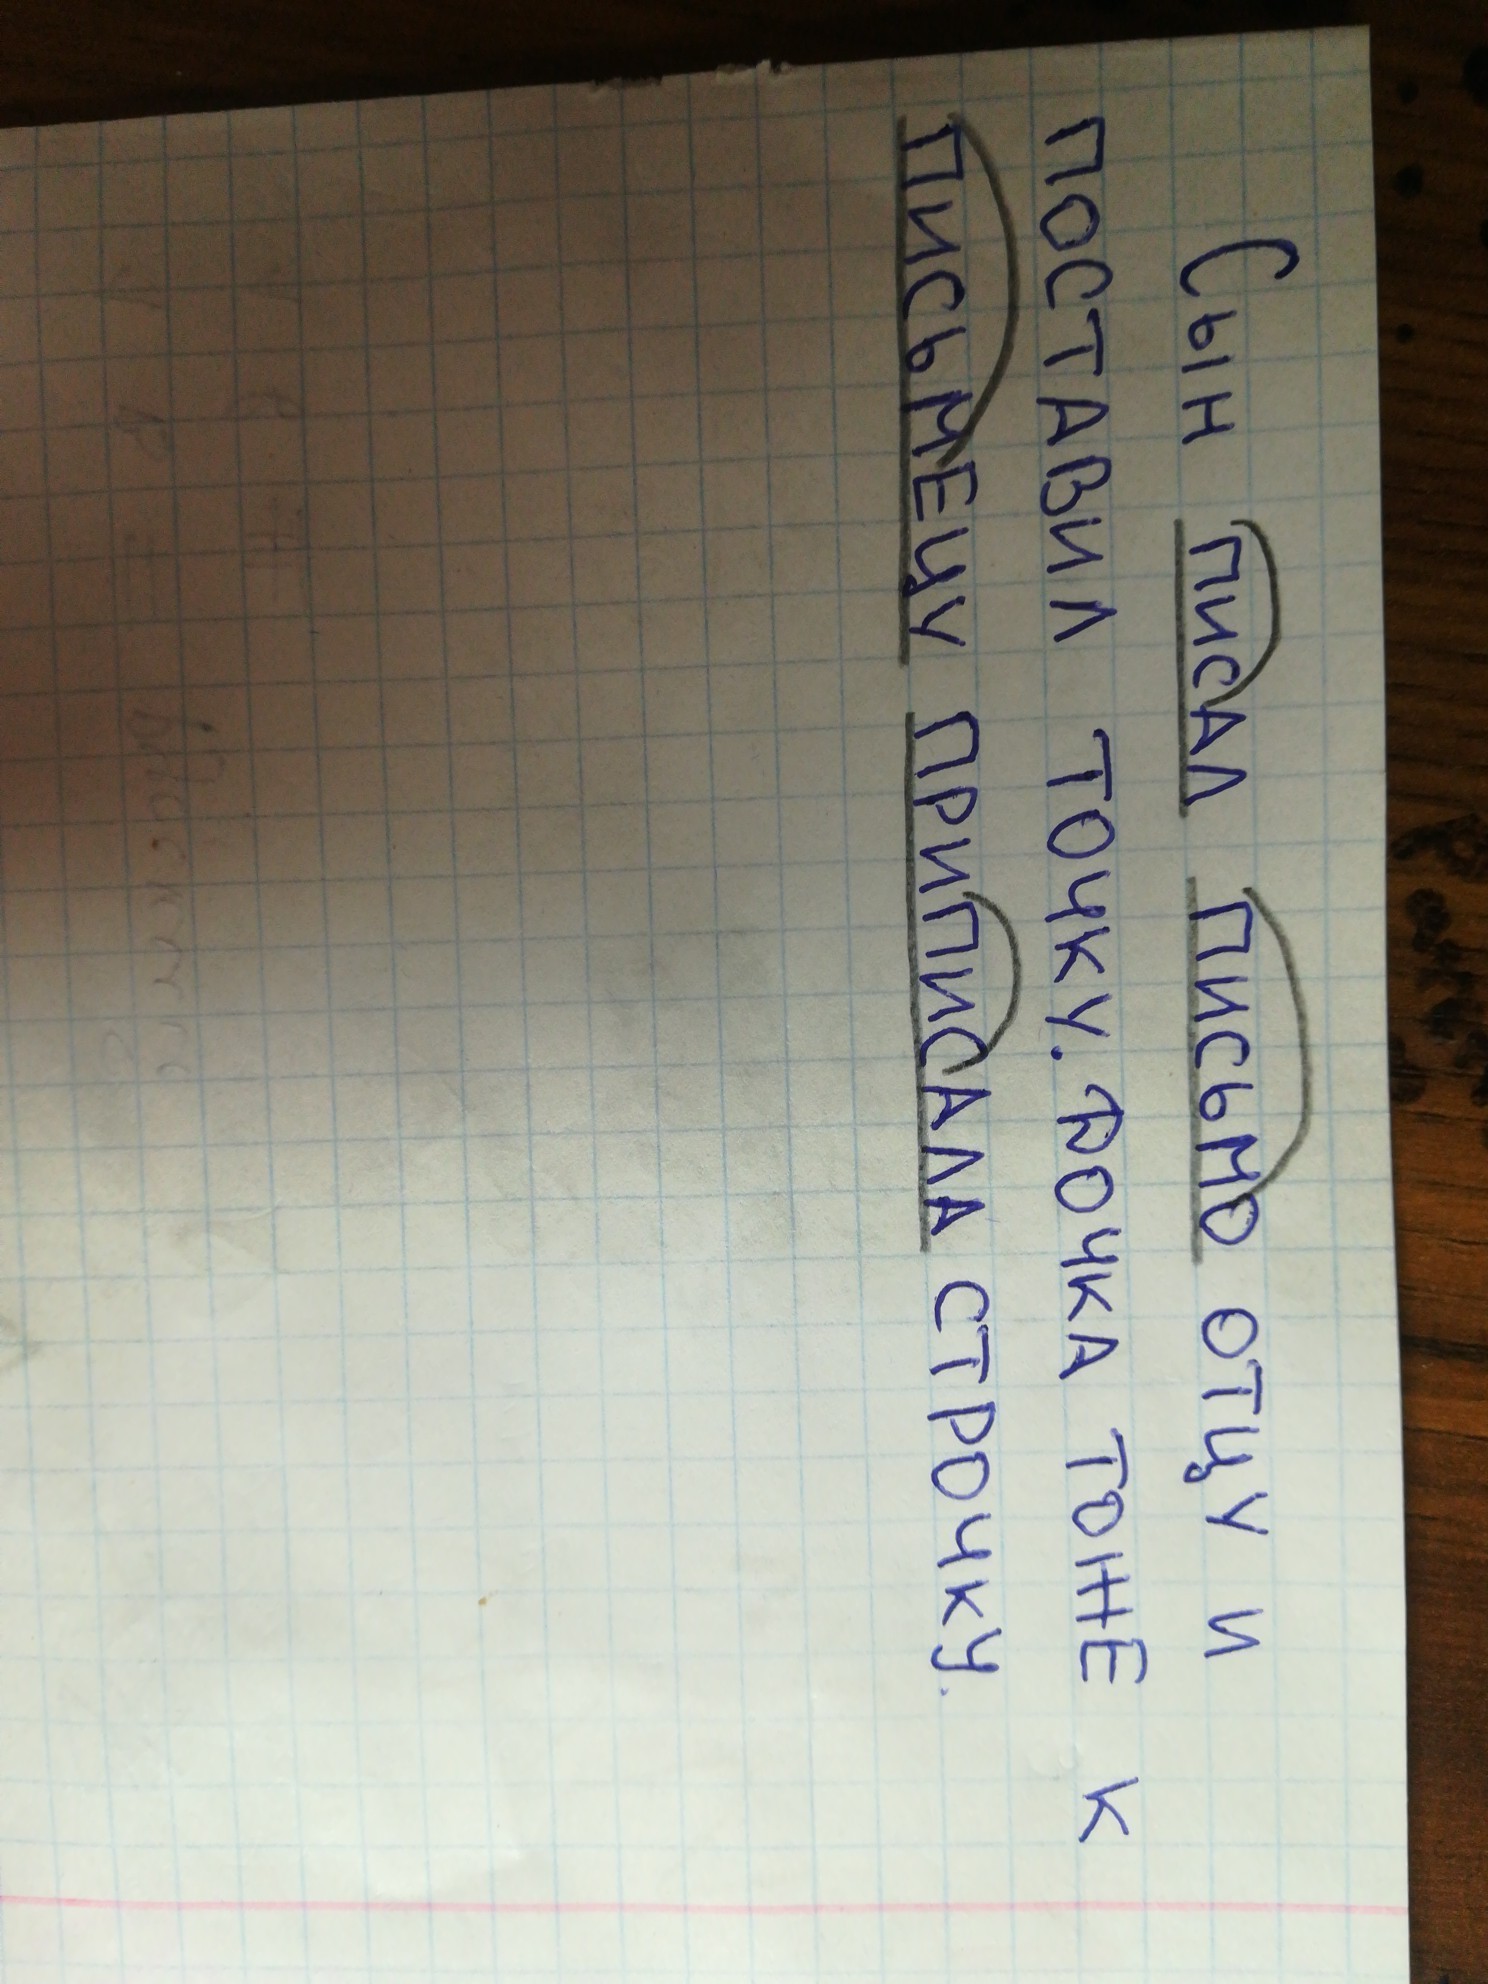 Сын писал письмо отцу и
поставил точку. Дочка тоже к
письмецу приписала строчку.